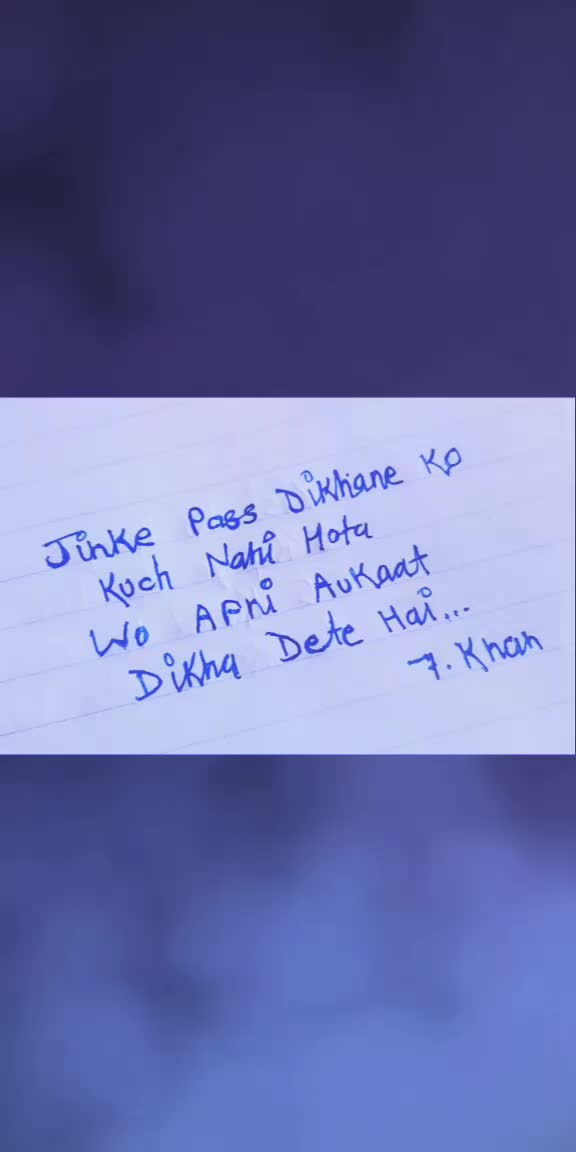 Jinke Pass Dikhane Ko
Kuch Nahi Hota
Wo Apni Aukaat
Dikha Dete Hai...
7. Khan